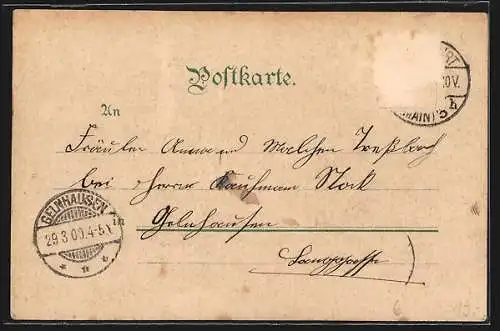 Postkarte.
An
Fräulein Anna und Malchen
bei Herrn Kaufmann Stock
in
Gelnhausen
Langgasse
GELNHAUSEN
29.3.00.4-5N.
(MAIN) 3
h